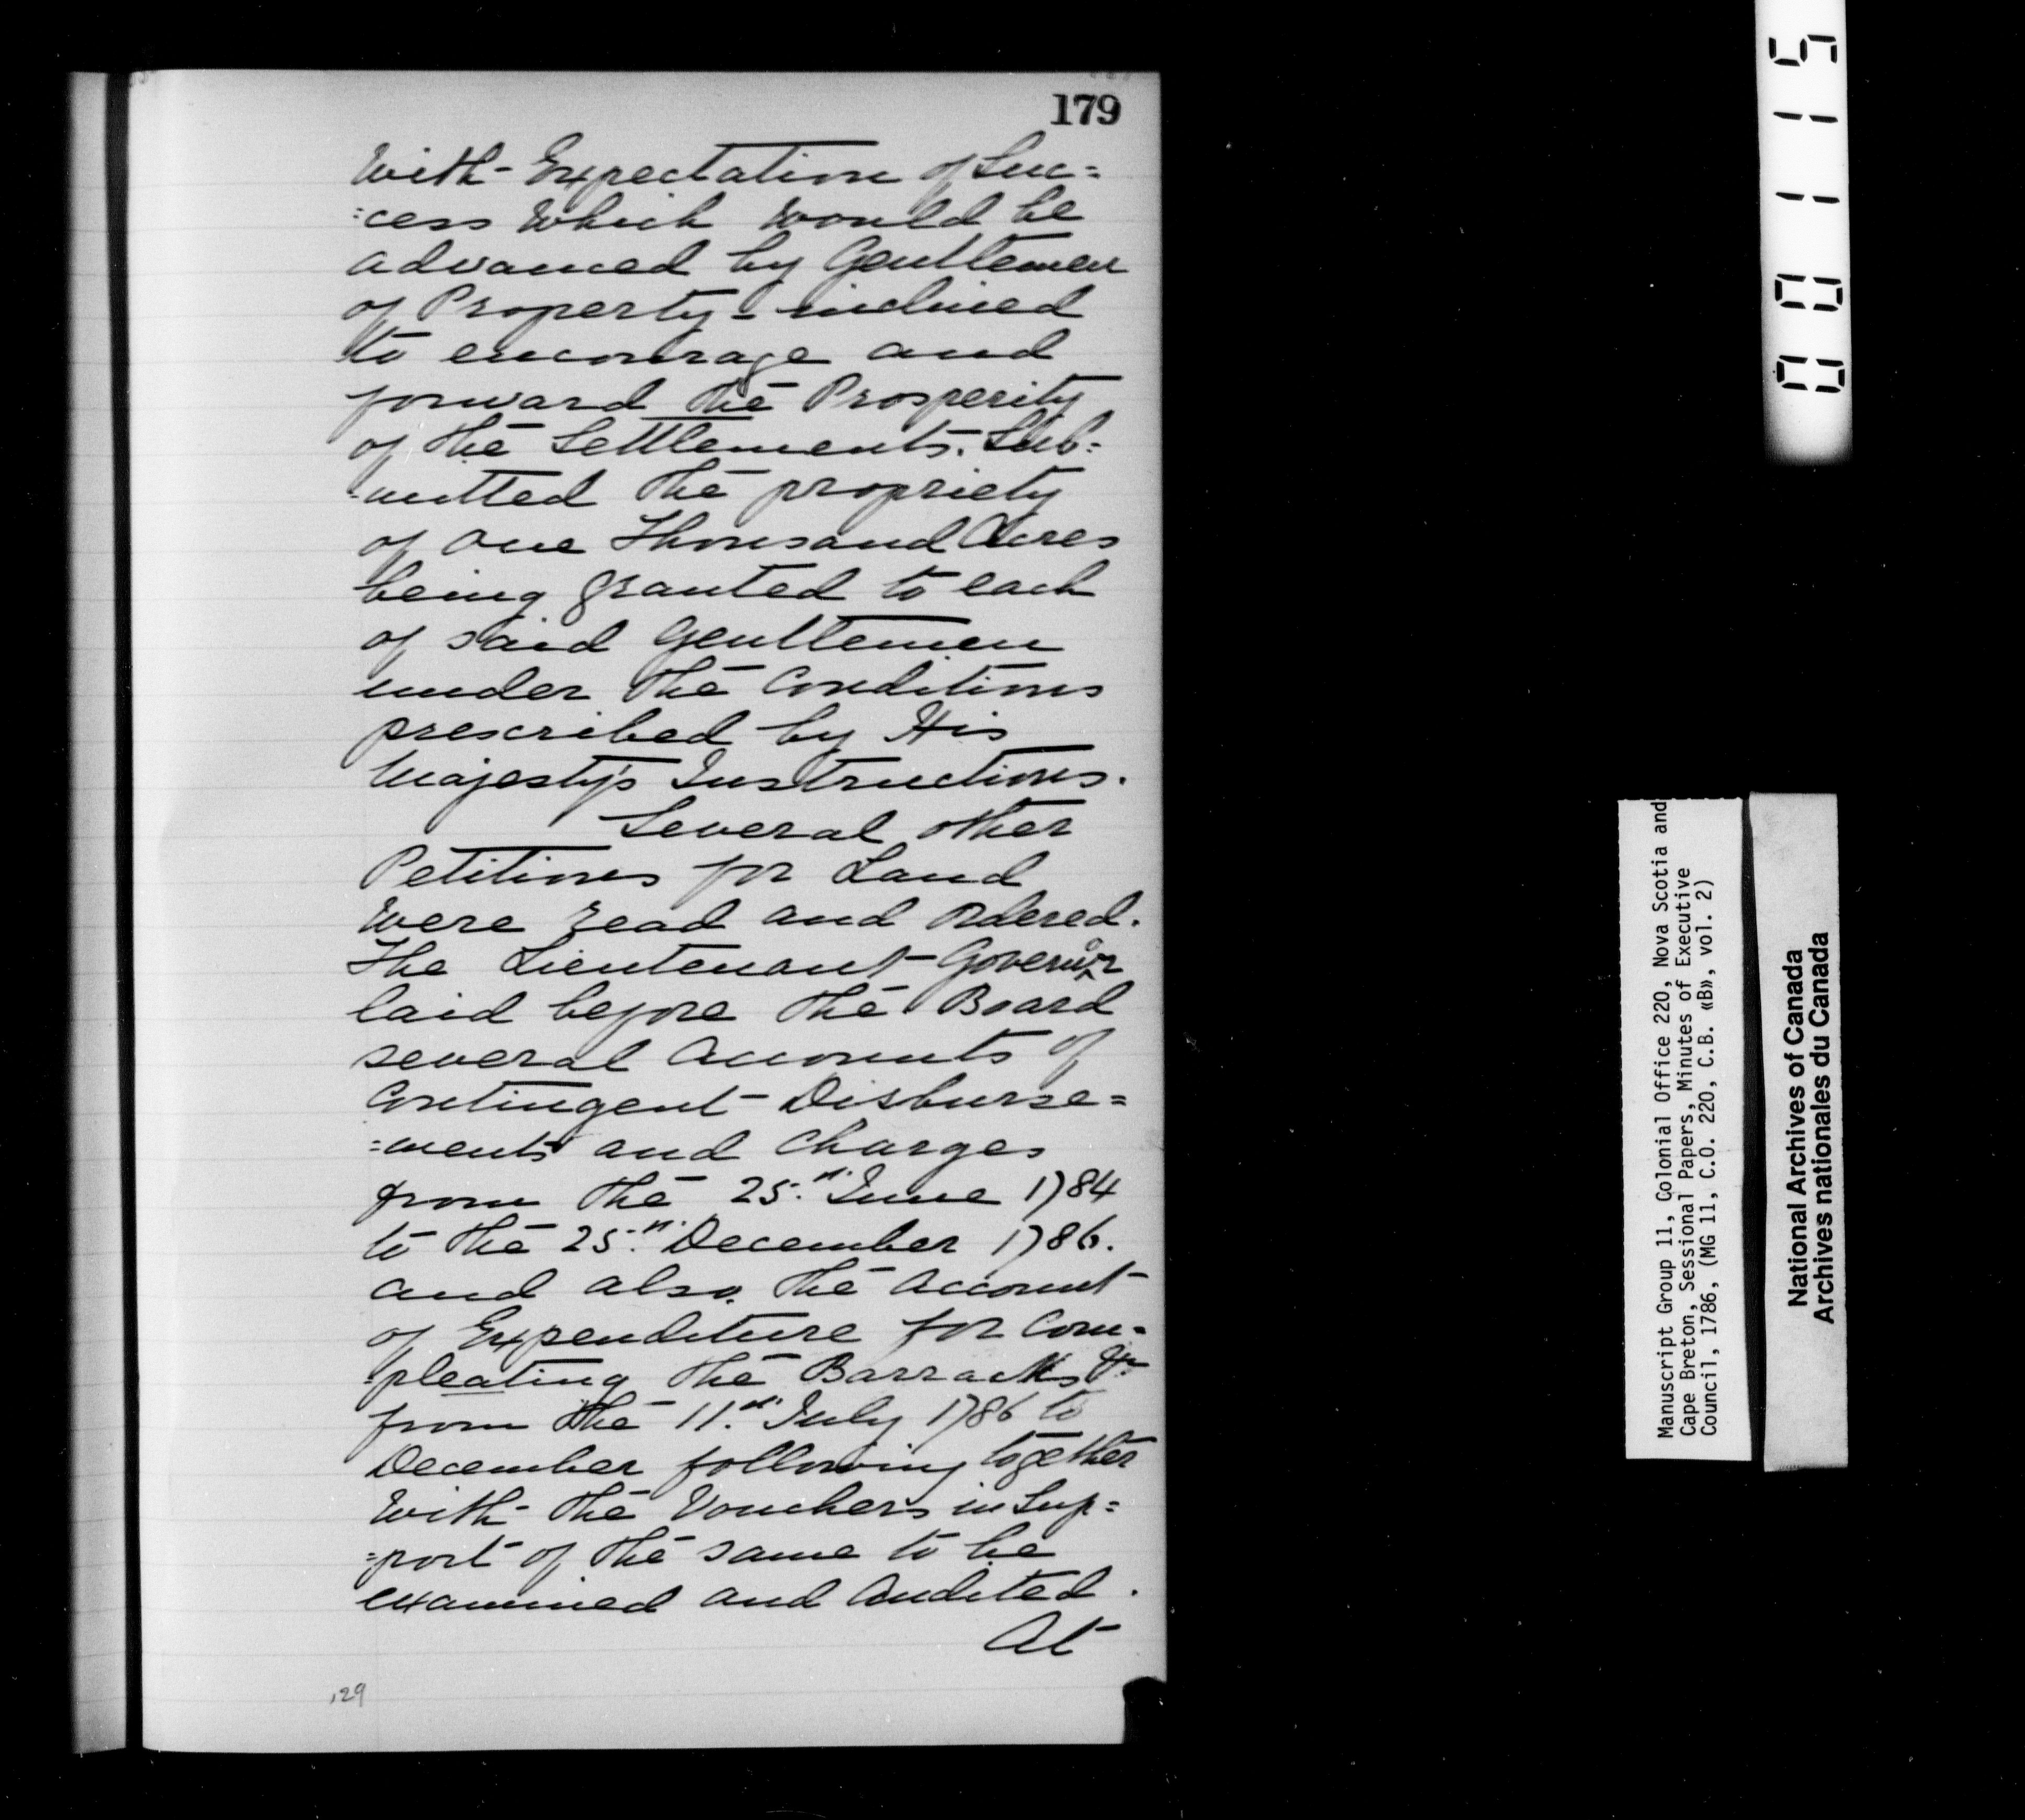 179
With Expectation of Suc=
=cess Which Would be
advanced by Gentlemen
of Property - inclined
to encourage and
forward the Prosperity
of the Settlements. Sub=
=mitted the propriety
of One Thousand Acres
being granted to each
of said Gentlemen
under the Conditions
prescribed by His
Majesty's Instructions.
Several other
Petitions for Land
Were read and Ordered.
The Lieutenant-Governor
laid before the Board
several Accounts of
Contingent Disburse=
=ments and Charges
from the 25.th June 1784
to the 25.th December 1786.
and also the Account
of Expenditure for Com=
=pleating the Barracks &c
from the 11.th July 1786 to
December following together
With the Vouchers in Sup=
=port of the same to be
examined and Audited.
At
129
00115
Manuscript Group 11, Colonial Office 220, Nova Scotia and
Cape Breton, Sessional Papers, Minutes of Executive
Council, 1786, (MG 11, C.O. 220, C.B. «B», vol. 2)
National Archives of Canada
Archives nationales du Canada